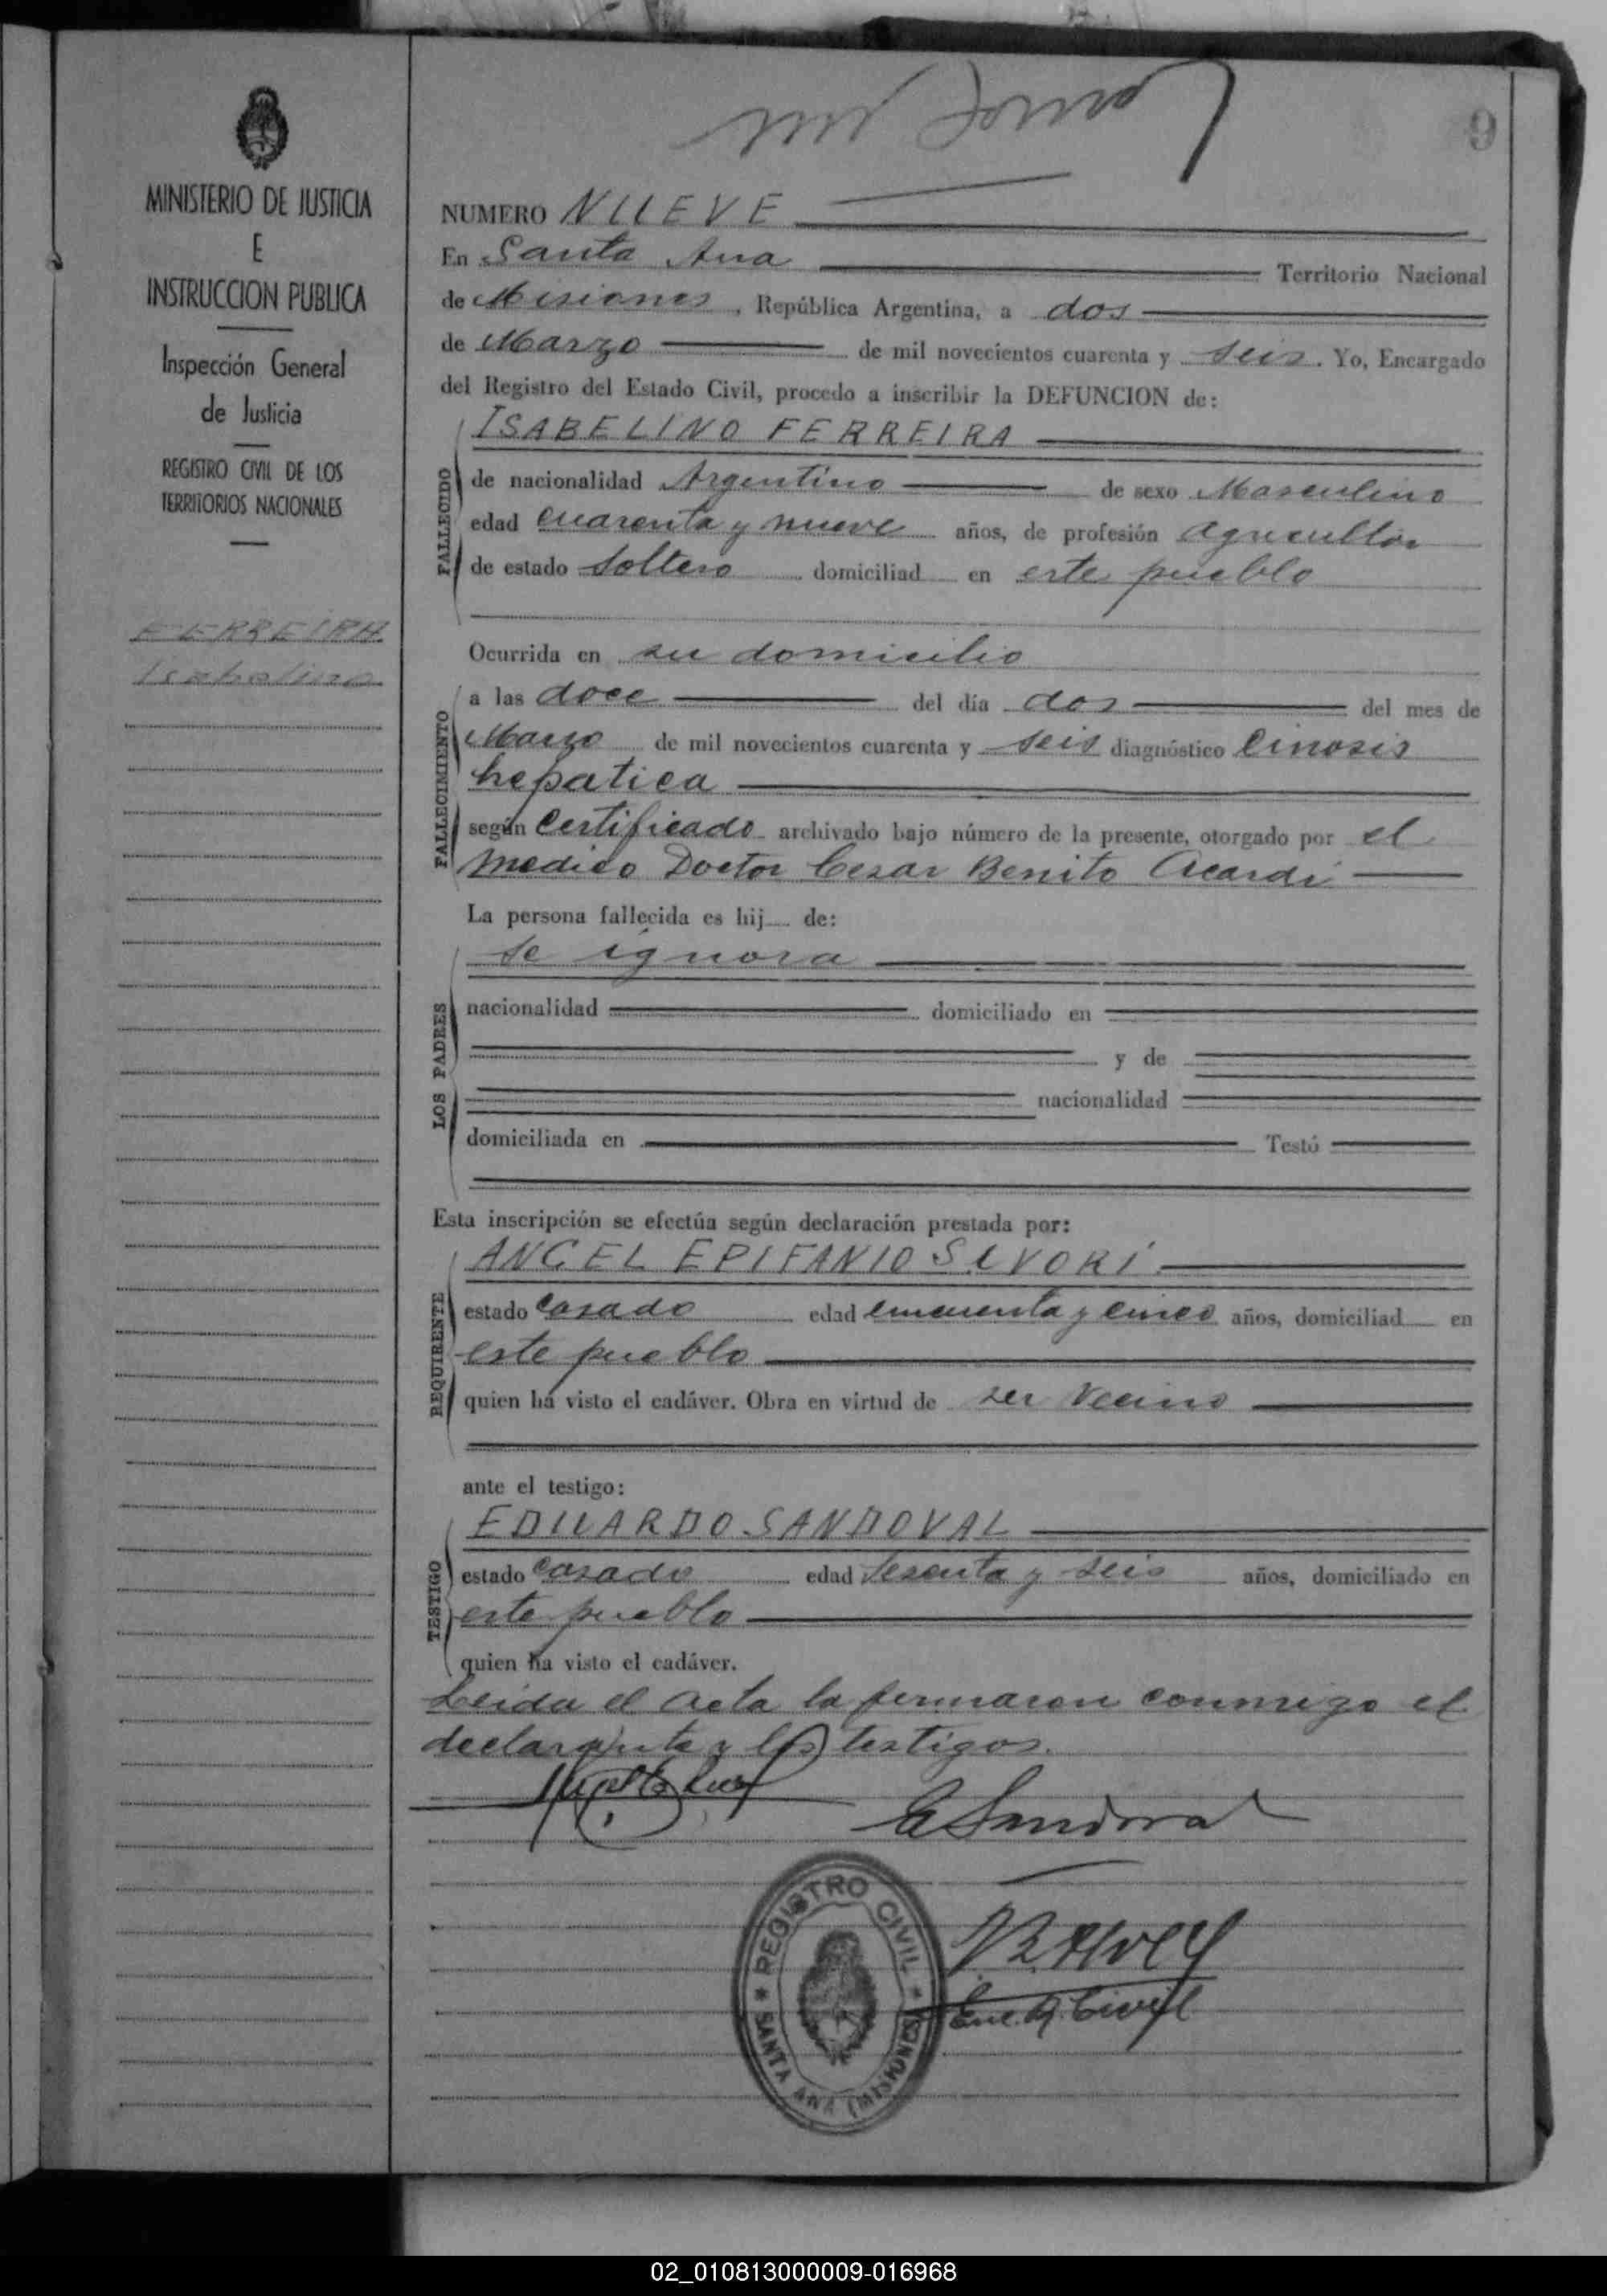 9
NUMERO NUEVE
En Santa Ana Territorio Nacional
de Misiones, República Argentina, a dos
de Marzo de mil novecientos cuarenta y seis. Yo, Encargado
del Registro del Estado Civil, procedo a inscribir la DEFUNCION de:
ISABELINO FERREIRA
FALLECIDO
de nacionalidad Argentino de sexo Masculino
edad cuarenta y nueve años, de profesión agricultor
de estado soltero domiciliad en este pueblo
Ocurrida en su domicilio
FALLECIMIENTO
a las doce del día dos del mes de
Marzo de mil novecientos cuarenta y seis diagnóstico Cirrosis
hepatica
según Certificado archivado bajo número de la presente, otorgado por el
medico Doctor Cesar Benito Acardi
La persona fallecida es hij de:
se ignora
LOS PADRES
nacionalidad domiciliado en
y de
nacionalidad
domiciliada en Testó
Esta inscripción se efectúa según declaración prestada por:
ANGEL EPIFANIO SIVORI
REQUIRENTE
estado casado edad cincuenta y cinco años, domiciliad en
este pueblo
quien ha visto el cadáver. Obra en virtud de ser vecino
ante el testigo:
EDUARDO SANDOVAL
TESTIGO
estado casado edad sesenta y seis años, domiciliado en
este pueblo
quien ha visto el cadáver.
Leida el acta la firmaron conmigo el
declarante y los testigos.
E Sandoval
Enc. R. Civil
REGISTRO CIVIL
SANTA ANA (MISIONES)
MINISTERIO DE JUSTICIA
E
INSTRUCCION PUBLICA
Inspección General
de Justicia
REGISTRO CIVIL DE LOS
TERRITORIOS NACIONALES
FERREIRA
Isabelino
02_010813000009-016968